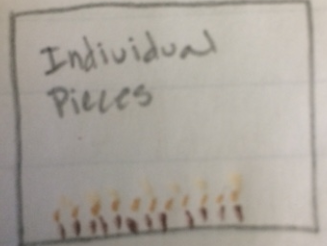 Individual
Pieces